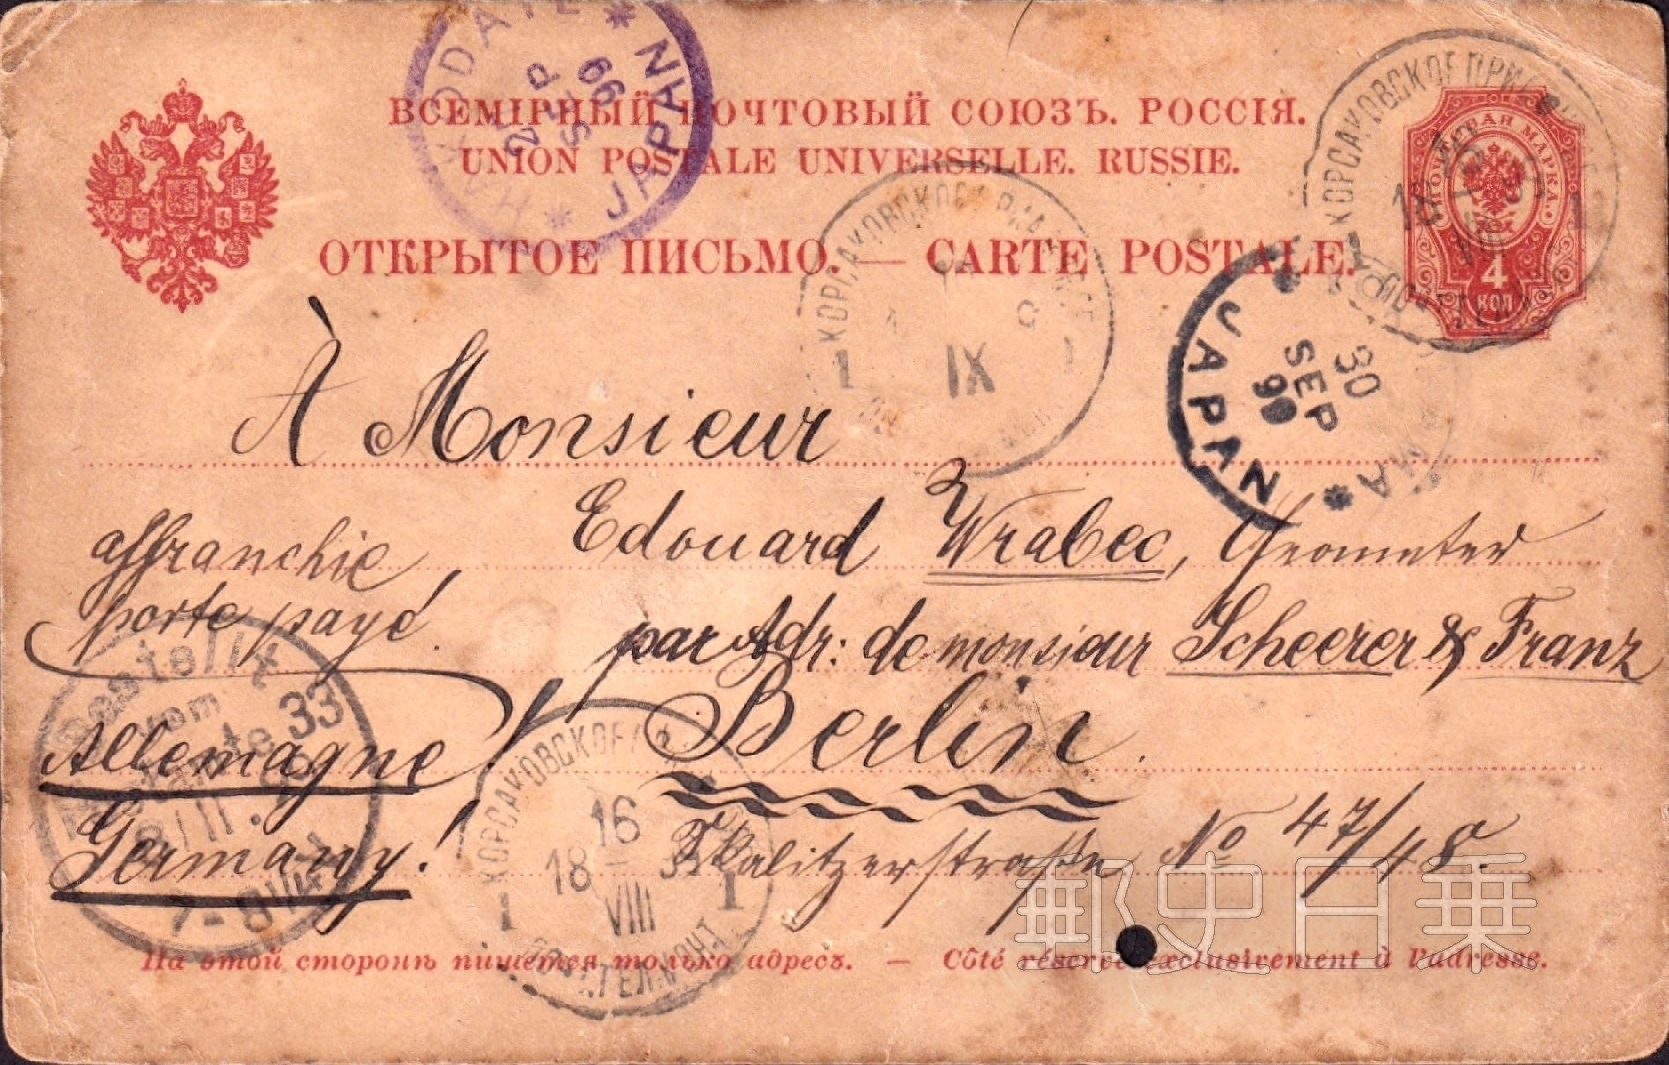 ВСЕМІРНЫЙ ПОЧТОВЫЙ СОЮЗЪ. РОССІЯ.
UNION POSTALE UNIVERSELLE. RUSSIE.
ОТКРЫТОЕ ПИСЬМО. — CARTE POSTALE.
HAKODATE * JAPAN *
2 SEP 99
ПОЧТОВАЯ МАРКА.
4
КОП
КОРСАКОВСКОЕ
18
1
КОРСАКОВСКОЕ
IX
1 1
* JAPAN *
30
SEP
99
À Monsieur
Edouard Wrabec, Geometer
affranchie
porte payé.
par Adr: de monsieur Scheerer & Franz
Allemagne!
Berlin.
Germany!
Skalitzerstraße No 47/48.
Bestellt
vom
Postamte 33
7-8 1/4
КОРСАКОВСКОЕ
16
18 99
VIII
1 1
ПОЧТ.ТЕЛ.КОНТ.
На этой сторонѣ пишется только адресъ. — Côté réservé exclusivement à l'adresse.
郵史日乗